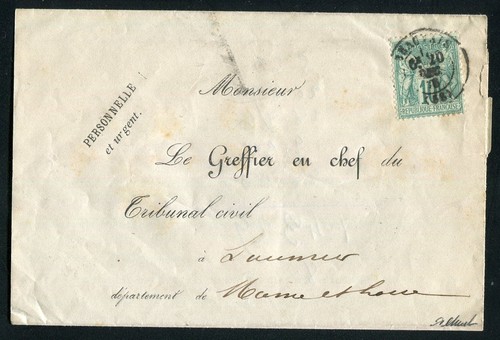 PERSONNELLE
et urgent.
Monsieur
Le Greffier en chef du
Tribunal civil
à Saumur
département de Maine et Loire
RÉPUBLIQUE FRANÇAISE
20